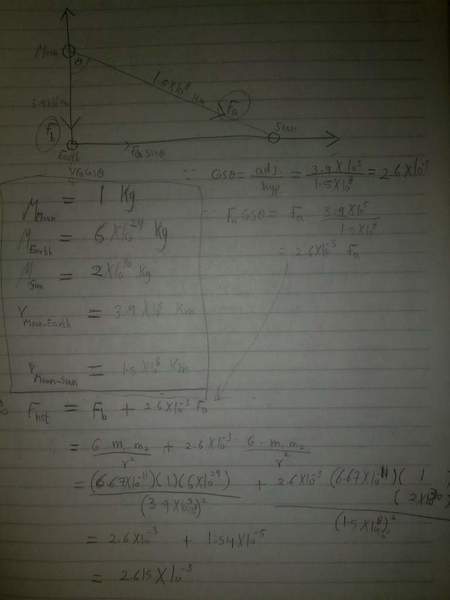 Moon
θ
1.5X10⁸ km
Fa
Fb
Earth
Sun
FG sinθ
∵ Cosθ = adj/hyp = 3.9X10⁵/1.5X10⁸ = 2.6X10⁻³
Fa Cosθ = Fa 3.9X10⁵/1.5X10⁸
= 2.6X10⁻³ Fa
M Moon = 1 Kg
M Earth = 6X10²⁴ Kg
M Sun = 2X10³⁰ Kg
r Moon-Earth = 3.9X10⁵ Km
r Moon-Sun = 1.5X10⁸ Km
Fnet = Fb + 2.6X10⁻³ Fa
= G m₁ m₂/r² + 2.6X10⁻³ G m₁ m₂/r²
= (6.67X10⁻¹¹)(1)(6X10²⁴)/(3.9X10⁵)² + 2.6X10⁻³ (6.67X10⁻¹¹)(1)(2X10³⁰)/(1.5X10⁸)²
= 2.6X10⁻³ + 1.54X10⁻⁵
= 2.615X10⁻³